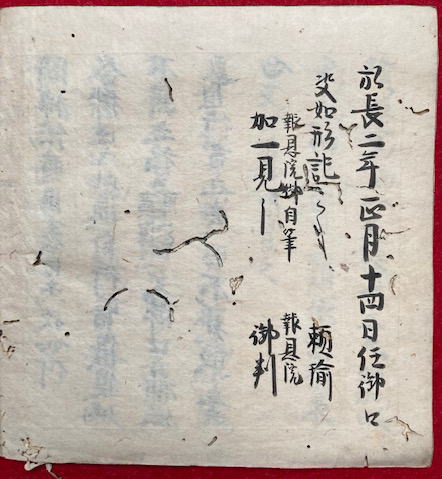 弘長二年正月十四日任御口
決如形記之了 頼瑜
報恩院御自筆 報恩院
加一見了 御判